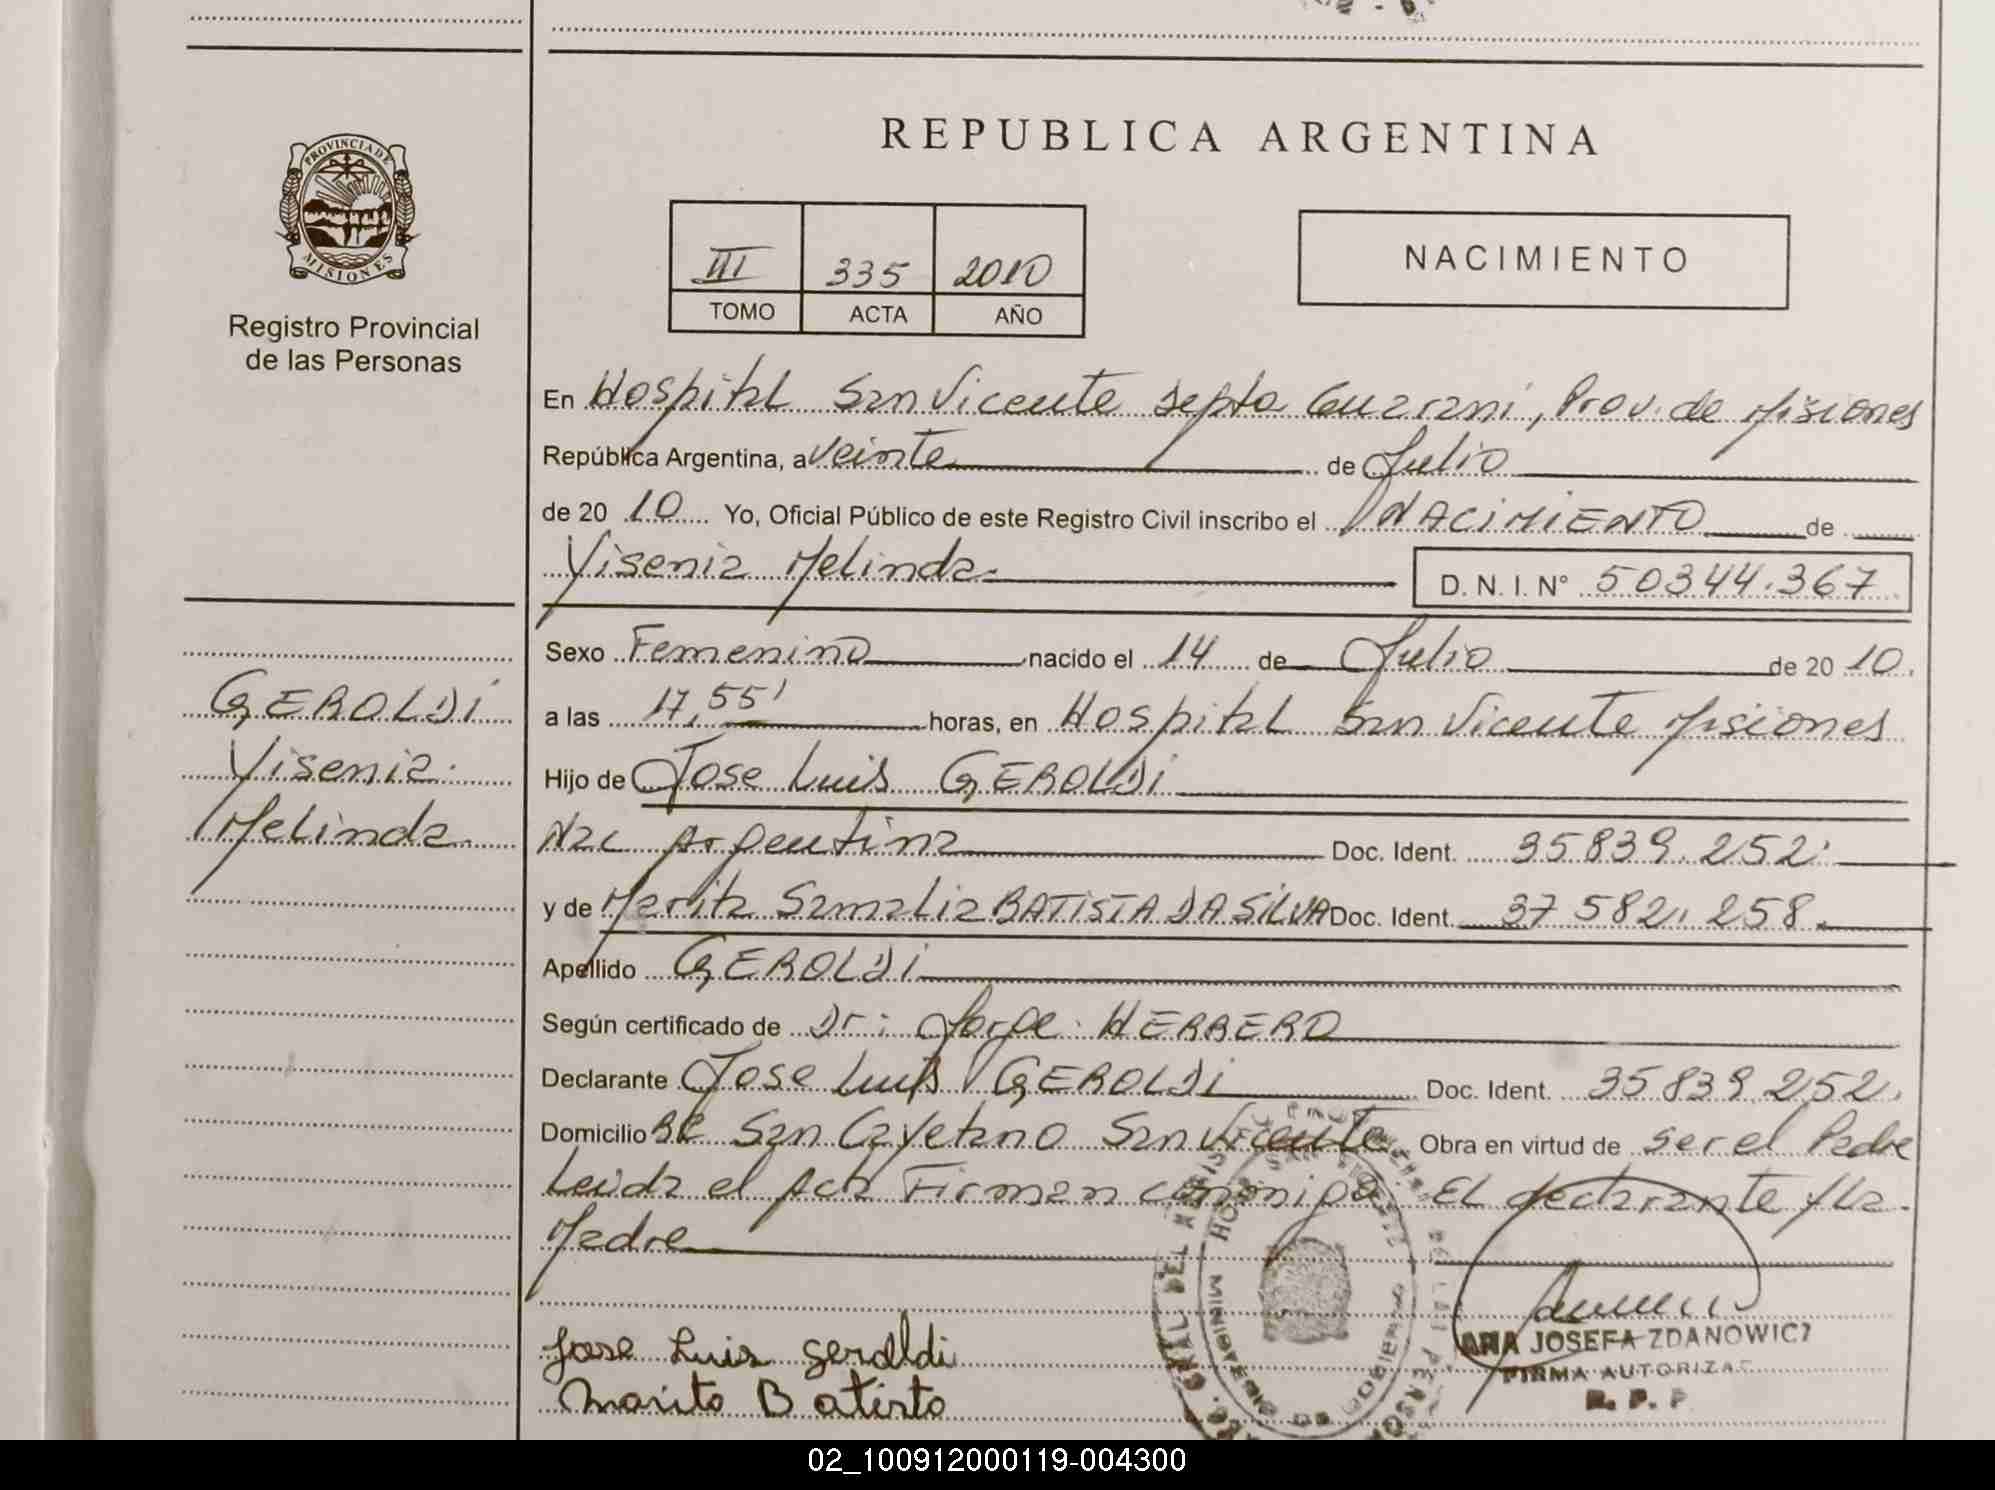 REPUBLICA ARGENTINA
PROVINCIA DE
MISIONES
Registro Provincial
de las Personas
III 335 2010
TOMO ACTA AÑO
NACIMIENTO
En Hospital San Vicente Depto Guarani, Prov. de Misiones
República Argentina, a veinte de Julio
de 20 10 Yo, Oficial Público de este Registro Civil inscribo el NACIMIENTO de
Yisenia Melinda.
D. N. I. N° 50344.367
Sexo Femenino nacido el 14 de Julio de 20 10.
a las 17,55' horas, en Hospital San Vicente Misiones
Hijo de Jose Luis GEROLDI
Nac Argentina Doc. Ident. 35839.252.
y de Marita Samalia BATISTA DA SILVA Doc. Ident. 37582.258.
Apellido GEROLDI
Según certificado de Dr: Jorge HERRERO
Declarante Jose Luis GEROLDI Doc. Ident. 35839252.
Domicilio San Cayetano San Vicente Obra en virtud de ser el Padre
Leida el acta Firman conmigo EL declarante y la
Madre
GEROLDI
Yisenia
Melinda
Jose Luis geroldi
Marita Batista
MINISTERIO DE GOBIERNO
JOSEFA ZDANOWICZ
FIRMA AUTORIZA
R. P. P
02_100912000119-004300